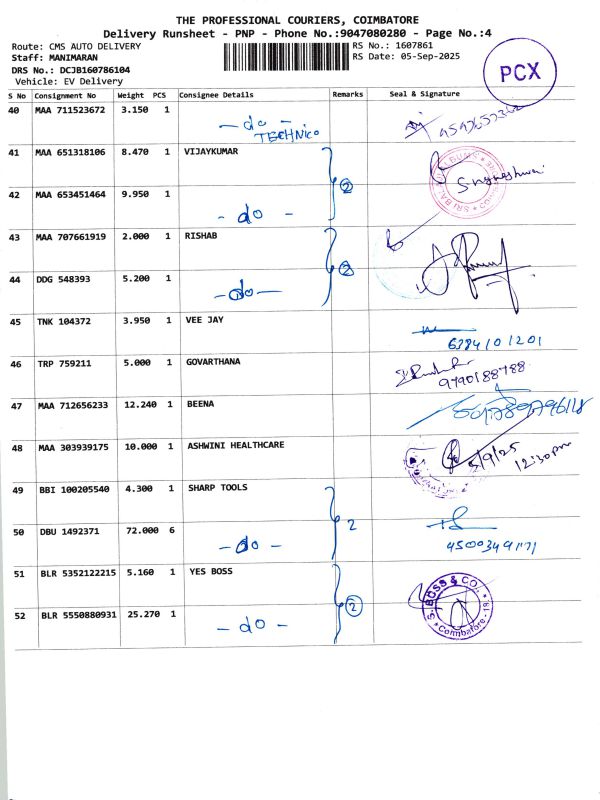 THE PROFESSIONAL COURIERS, COIMBATORE
Delivery Runsheet - PNP - Phone No.:9047080280 - Page No.:4
Route: CMS AUTO DELIVERY
RS No.: 1607861
Staff: MANIMARAN
RS Date: 05-Sep-2025
DRS No.: DCJB160786104
Vehicle: EV Delivery
PCX
S No Consignment No Weight PCS Consignee Details Remarks Seal & Signature
40 MAA 711523672 3.150 1
- do -
TECHNICO
41 MAA 651318106 8.470 1 VIJAYKUMAR
2
42 MAA 653451464 9.950 1
- do -
43 MAA 707661919 2.000 1 RISHAB
2
44 DDG 548393 5.200 1
- do -
45 TNK 104372 3.950 1 VEE JAY
6384101201
46 TRP 759211 5.000 1 GOVARTHANA
9790188788
47 MAA 712656233 12.240 1 BEENA
48 MAA 303939175 10.000 1 ASHWINI HEALTHCARE
5/9/25
12:30pm
49 BBI 100205540 4.300 1 SHARP TOOLS
2
50 DBU 1492371 72.000 6
- do -
51 BLR 5352122215 5.160 1 YES BOSS
2
S.BOSS & CO.
Coimbatore - 18
52 BLR 5550880931 25.270 1
- do -